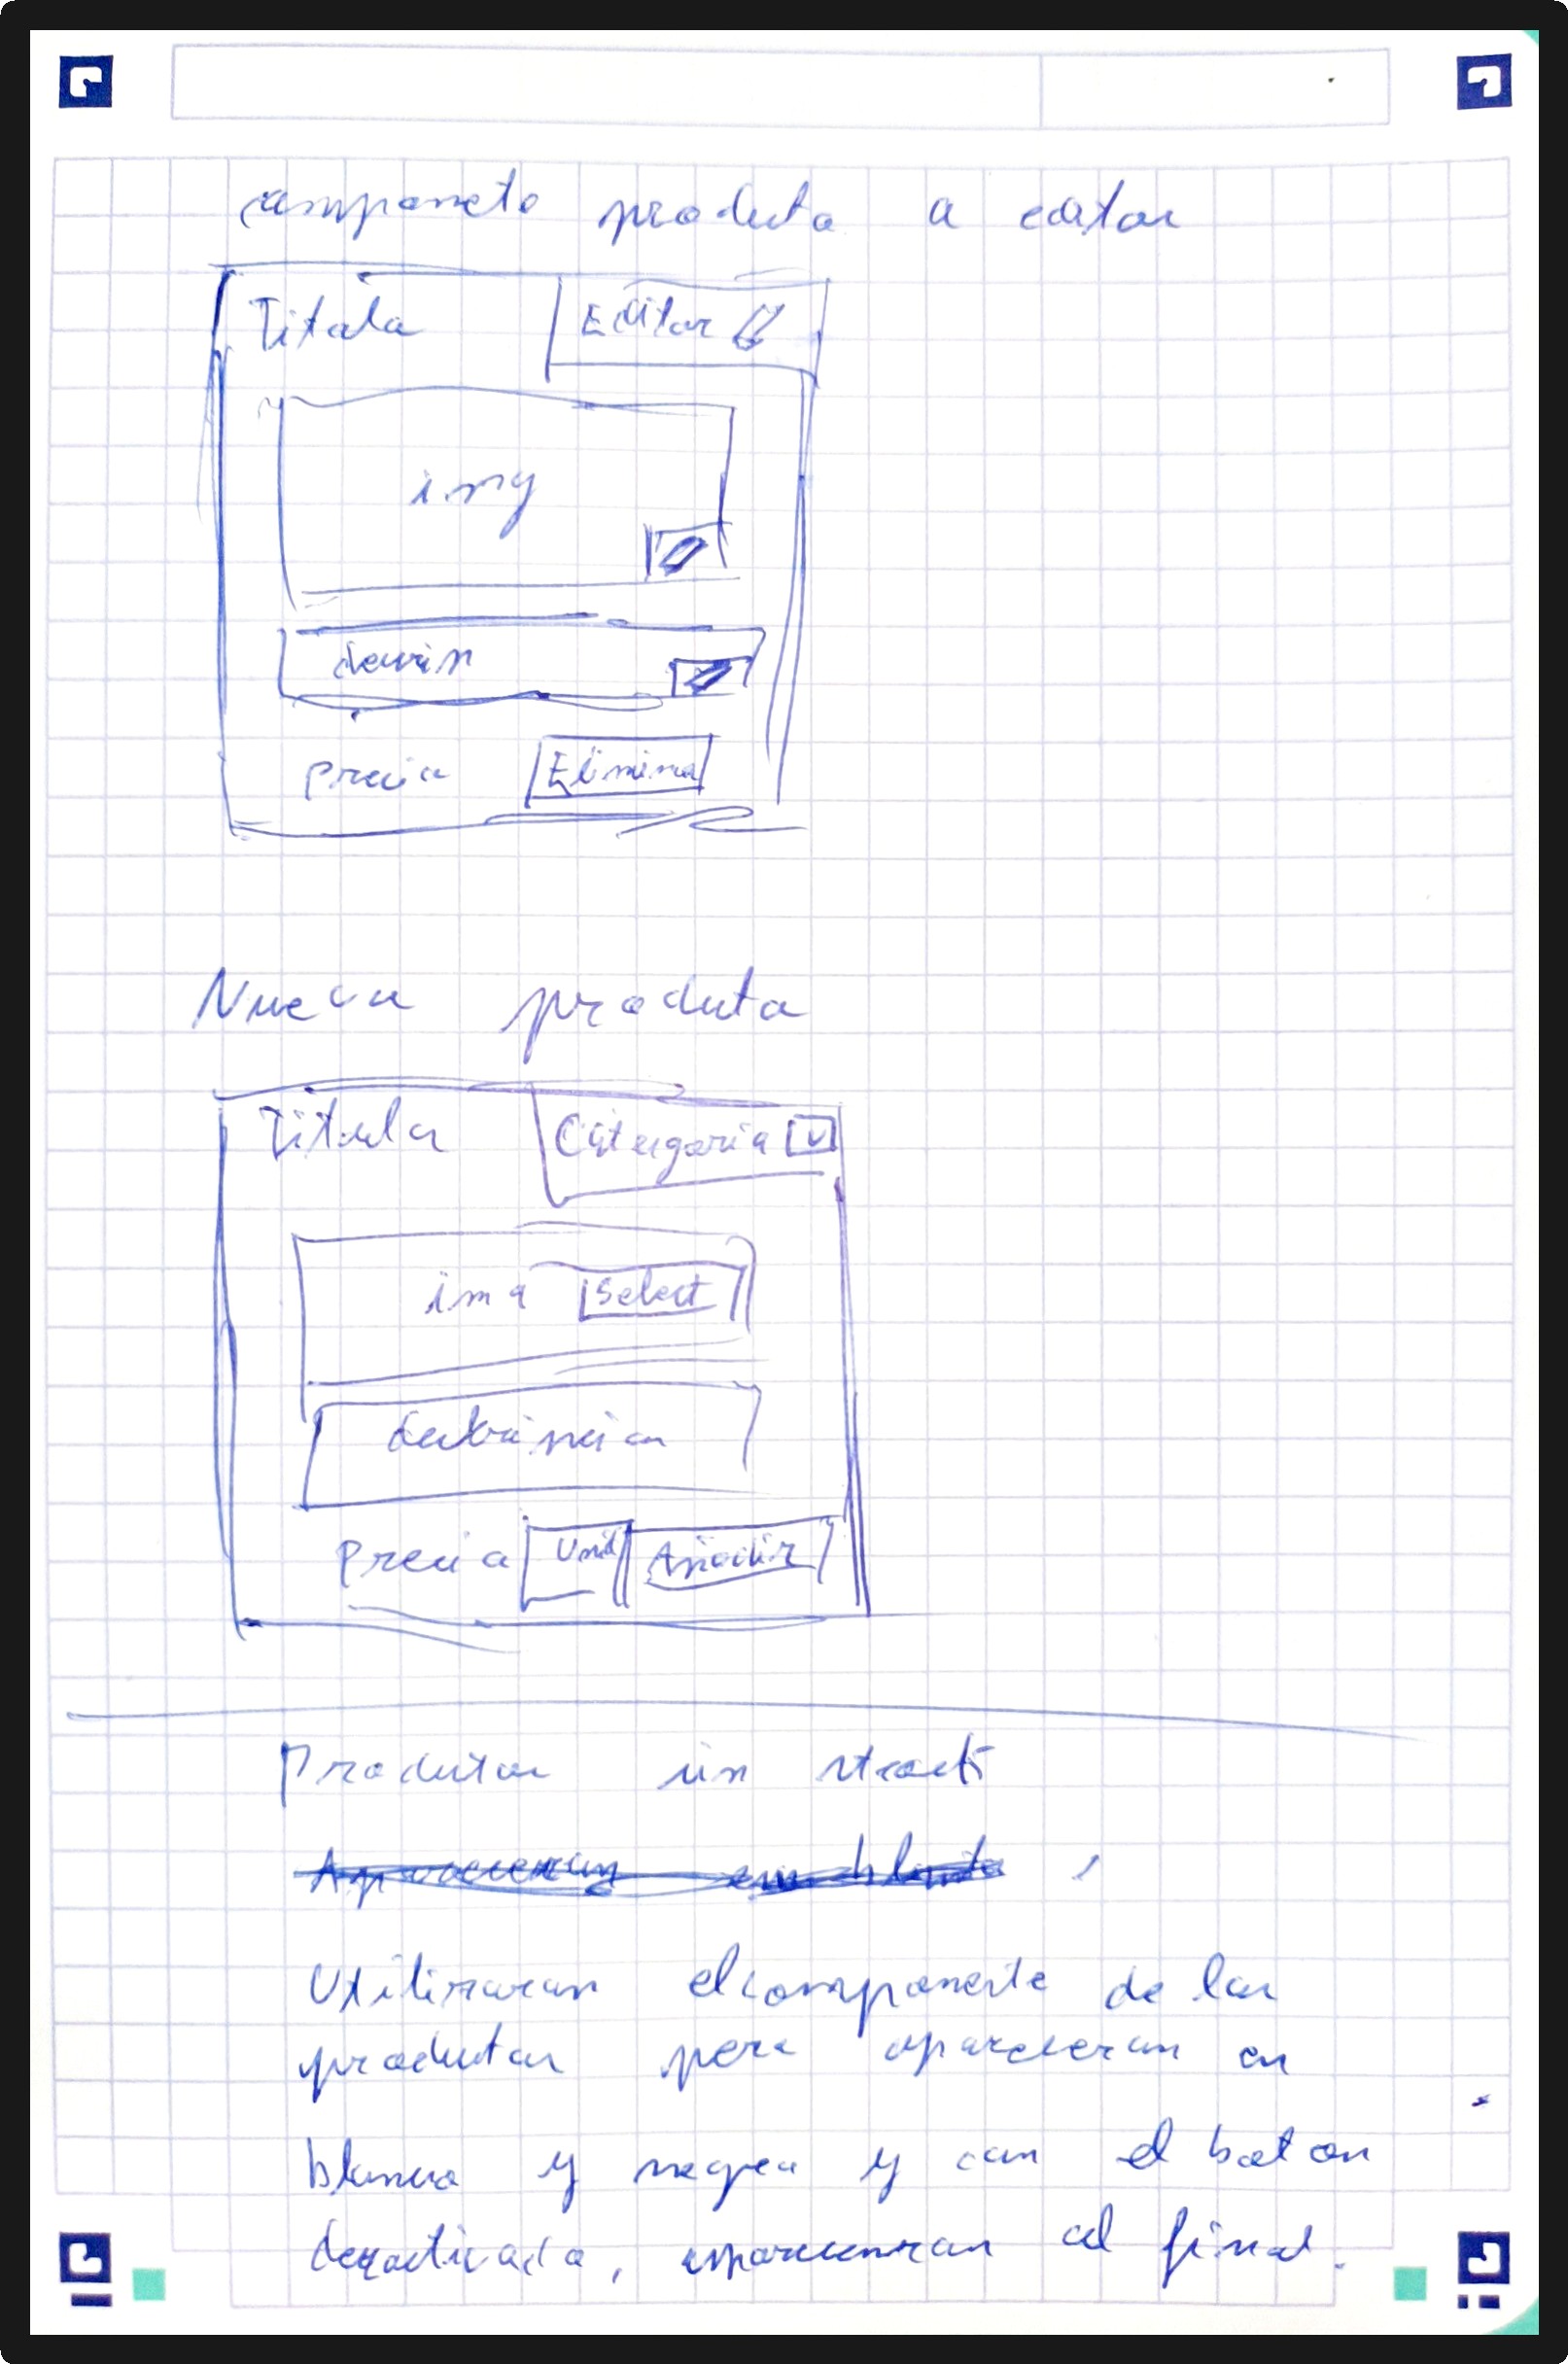 componeto producto a editar
Titulo Editar
img
descrin
precio Elimina
Nuevo producto
Titulo Categoria
ima Select
precio Unid Añadir
Productos sin stock
Utilizaran el componente de los
productos pero apareceran en
blanco y negro y con el boton
desactivado, apareceran al final.